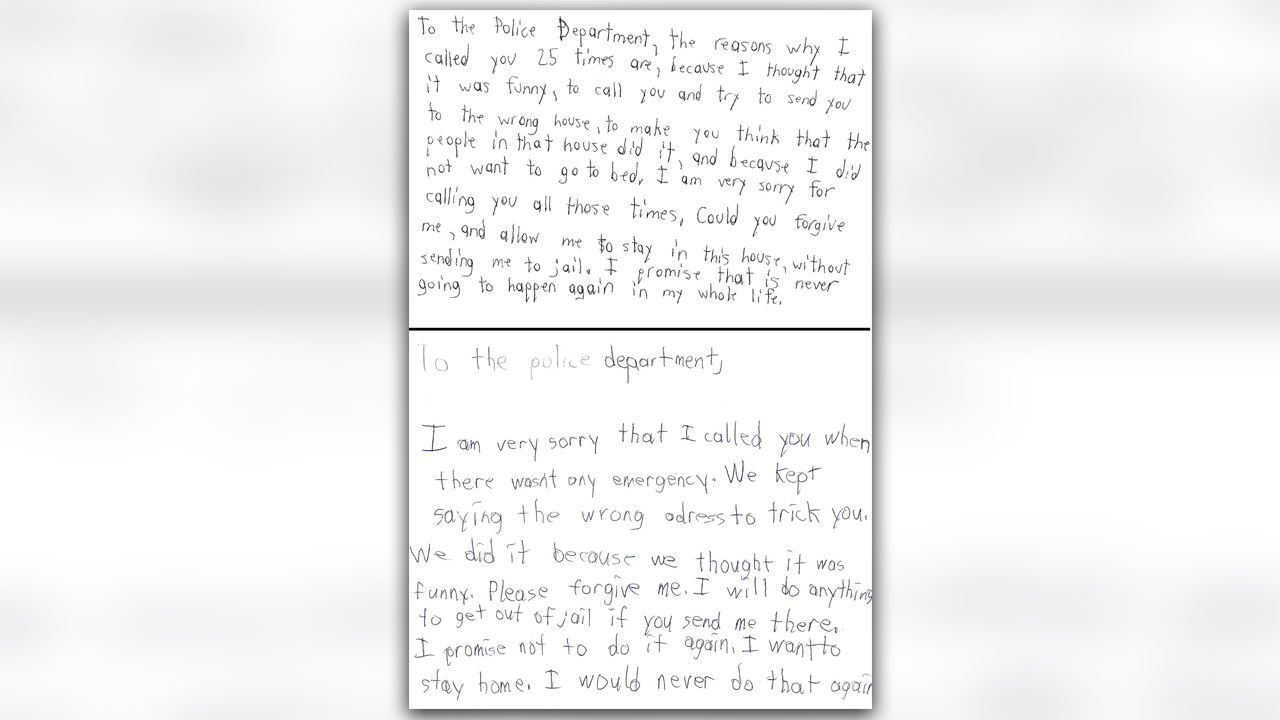 To the Police Department, the reasons why I
called you 25 times are, because I thought that
it was funny, to call you and try to send you
to the wrong house, to make you think that the
people in that house did it, and because I did
not want to go to bed. I am very sorry for
calling you all those times, Could you forgive
me, and allow me to stay in this house, without
sending me to jail. I promise that is never
going to happen again in my whole life.
To the police department,
I am very sorry that I called you when
there wasnt any emergency. We kept
saying the wrong adress to trick you.
We did it because we thought it was
funny. Please forgive me. I will do anything
to get out of jail if you send me there.
I promise not to do it again. I want to
stay home. I would never do that again